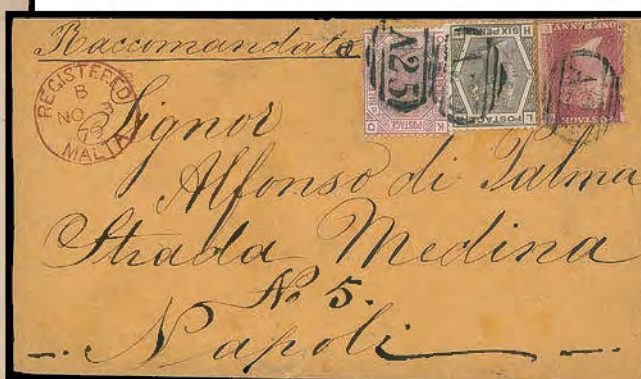 Raccomandata
REGISTERED
B
NO 3
79
MALTA
A25
SIX PENCE
POSTAGE
H
L
ONE PENNY
POSTAGE
O
K
Signor
Alfonso di Palma
Strada Medina
No 5.
Napoli